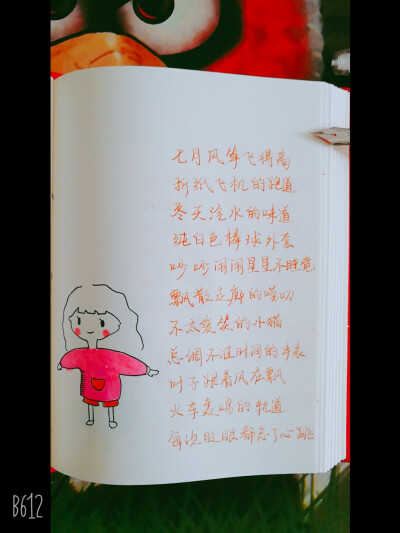 七月风筝飞得高
折纸飞机的跑道
冬天汽水的味道
纯白色棒球外套
吵吵闹闹星星不睡觉
飘散走廊的唠叨
不太爱笑的小猫
总调不准时间的手表
叶子跟着风在飘
火车轰鸣的轨道
每次眨眼都忘了心跳
B612